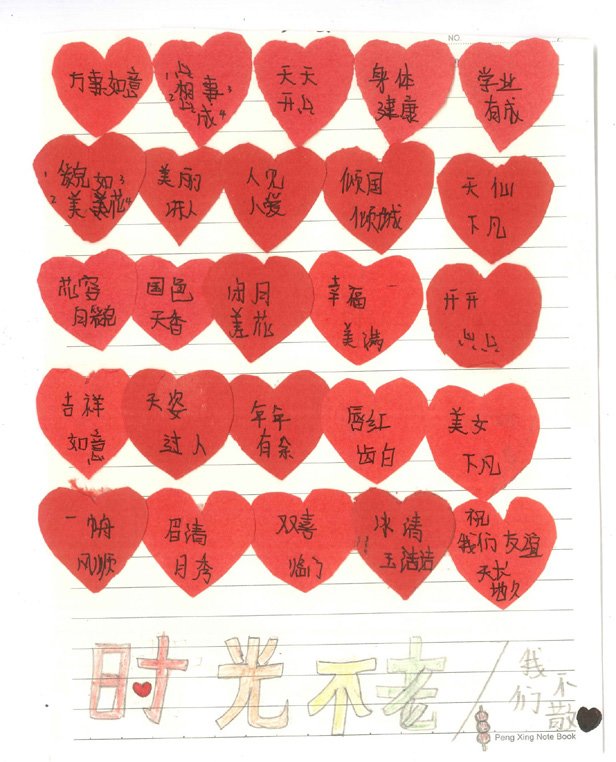 NO.
万事如意
心
想事
成
天天
开心
身体
健康
学业
有成
貌如
美美花
美丽
动人
人见
人爱
倾国
倾城
天仙
下凡
花容
月貌
国色
天香
闭月
羞花
幸福
美满
开开
心心
吉祥
如意
天姿
过人
年年
有余
唇红
齿白
美女
下凡
一帆
风顺
眉清
目秀
双喜
临门
冰清
玉洁洁
祝
我们友谊
天长
地久
时光不老/我们不散
Peng Xing Note Book